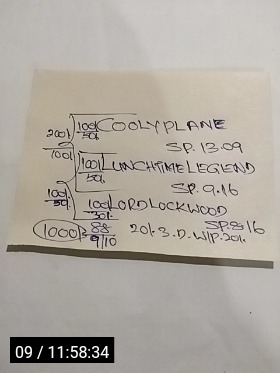 100/- COOLYPLANE
200/- 50/-
100/- SP. 13.09
100/- LUNCHTIME LEGEND
50/-
SP. 9.16
100/- 100/- LORD LOCKWOOD
50/- 50/- SP. 8.16
1000/- = 88 20/- 3. D. W/P. 20/-
9/10
09 / 11:58:34